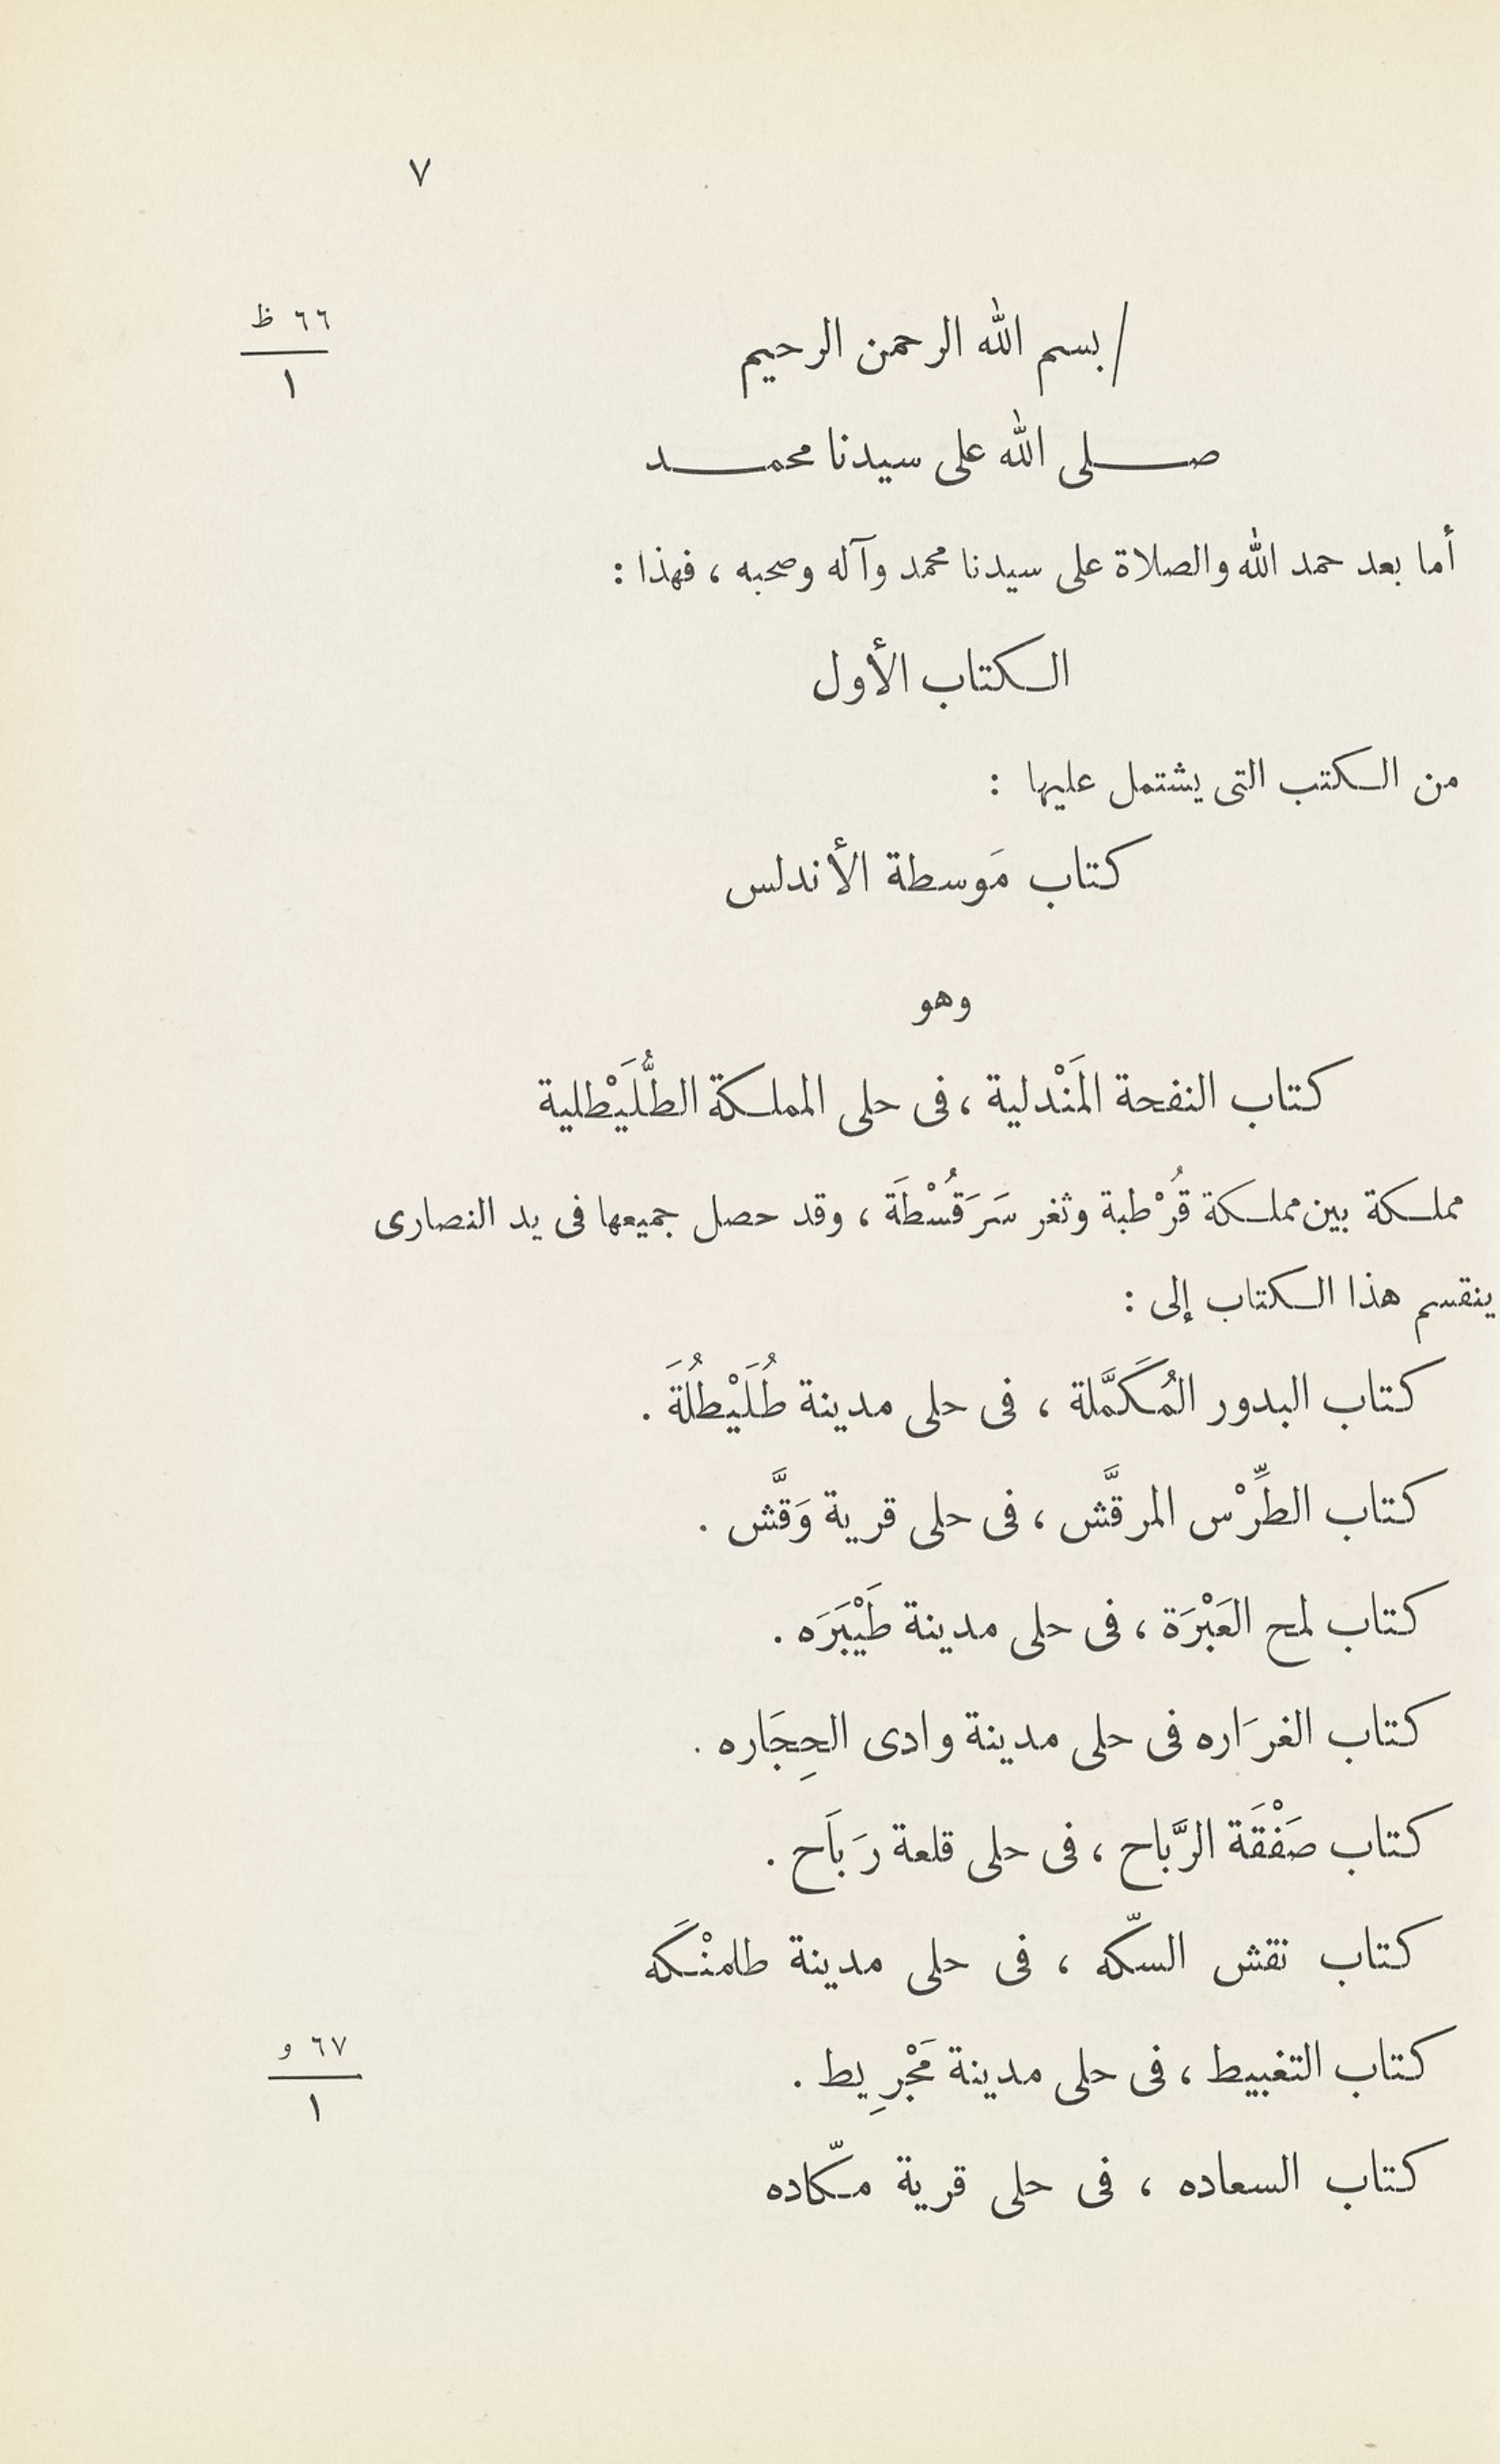 ٧
/بسم الله الرحمن الرحيم
٦٦ ظ
١
صلى الله على سيدنا محمد
أما بعد حمد الله والصلاة على سيدنا محمد وآله وصحبه ، فهذا :
الكتاب الأول
من الكتب التى يشتمل عليها :
كتاب مَوسطة الأندلس
وهو
كتاب النفحة المَنْدلية ، فى حلى المملكة الطُّلَيْطلية
مملكة بين مملكة قُرْطبة وثغر سَرَقُسْطَة ، وقد حصل جميعها فى يد النصارى
ينقسم هذا الكتاب إلى :
كتاب البدور المُكَمَّلة ، فى حلى مدينة طُلَيْطُلَة .
كتاب الطِّرْس المرقَّش ، فى حلى قرية وَقَّش .
كتاب لمح العَبْرَة ، فى حلى مدينة طَيْبَرَه .
كتاب الغرَاره فى حلى مدينة وادى الحِجَاره .
كتاب صَفْقَة الرَّباح ، فى حلى قلعة رَبَاح .
كتاب نقش السكّه ، فى حلى مدينة طلمنْكَه
كتاب التغبيط ، فى حلى مدينة مَجْرِيط .
٦٧ و
١
كتاب السعاده ، فى حلى قرية مكّاده